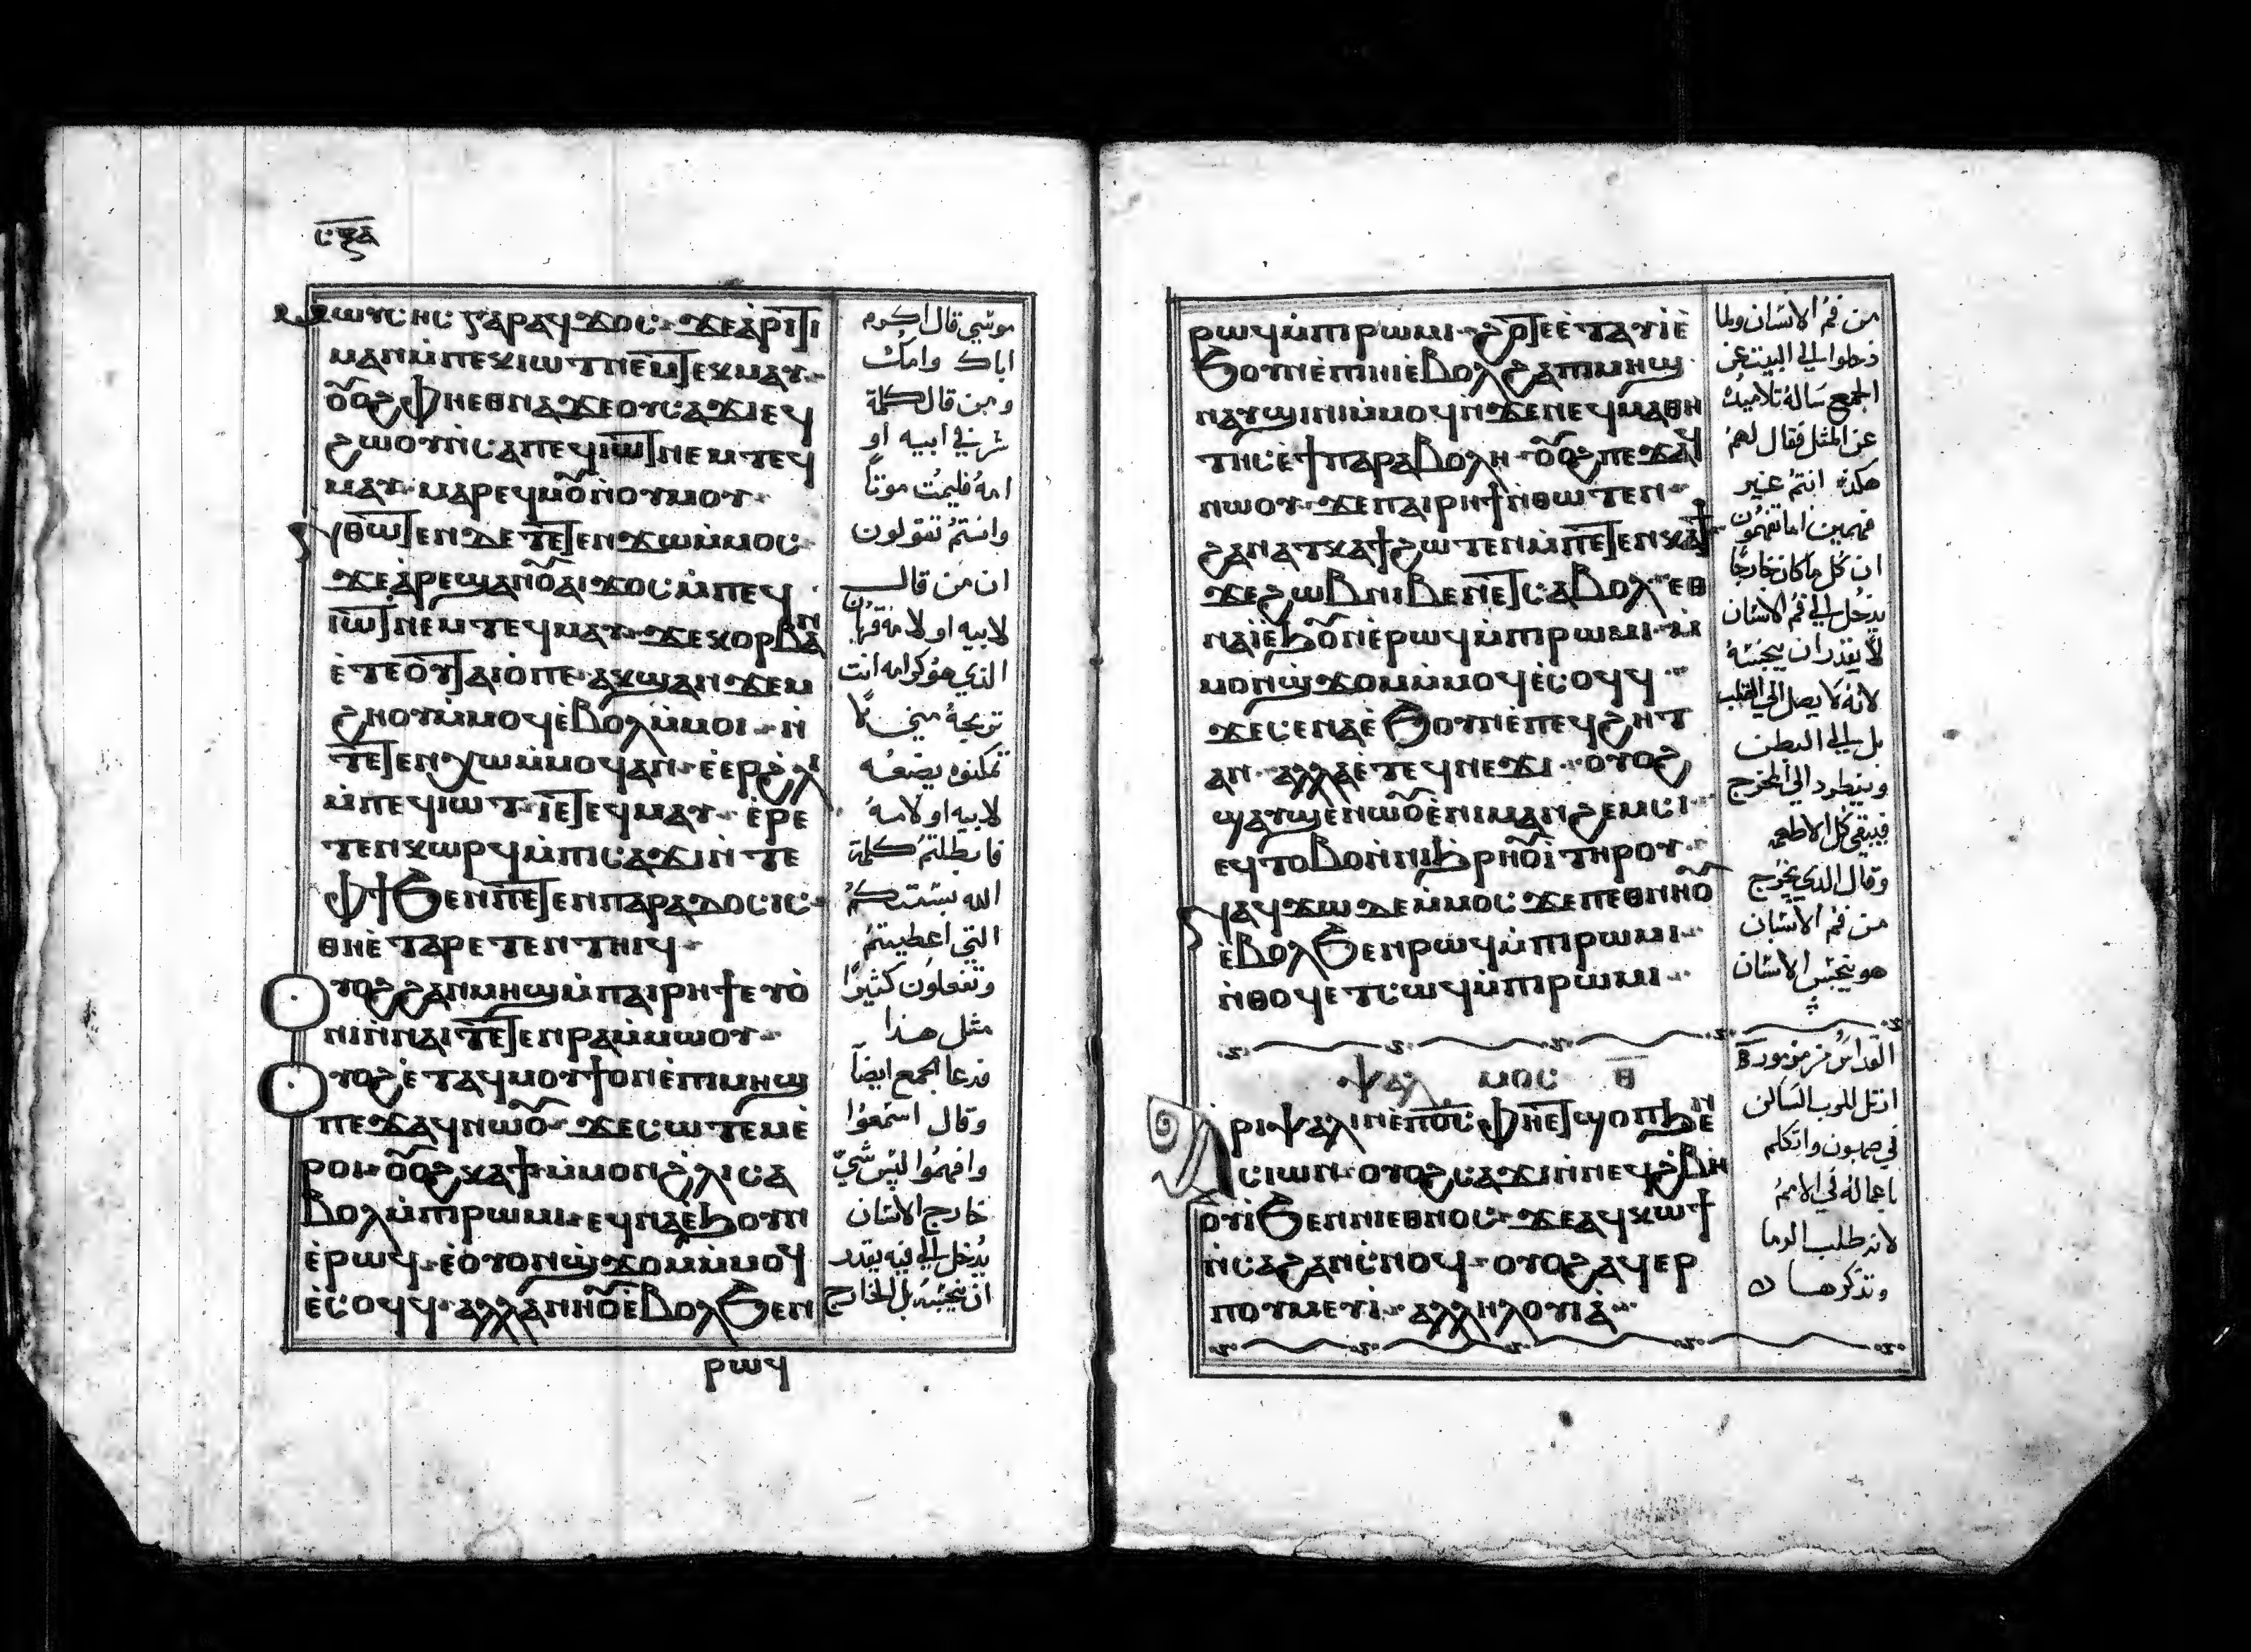 ⲥⲝⲇ
ⲙⲱⲩⲥⲏⲥ ⲅⲁⲣ ⲁϥϫⲟⲥ ϫⲉ ⲁ̀ⲣⲓⲧⲓ
ⲙⲁⲛ ⲙ̀ⲡⲉⲕⲓⲱⲧ ⲛⲉⲙ ⲧⲉⲕⲙⲁⲩ
ⲟⲩⲟϩ ⲫⲏⲉⲑⲛⲁϫⲉ ⲟⲩⲥⲁϫⲓ ⲉϥ
ϩⲱⲟⲩ ⲛ̀ⲥⲁ ⲡⲉϥⲓⲱⲧ ⲛⲉⲙ ⲧⲉϥ
ⲙⲁⲩ ⲙⲁⲣⲉϥⲙⲟⲩ ϧⲉⲛ ⲟⲩⲙⲟⲩ
ⲛ̀ⲑⲱⲧⲉⲛ ⲇⲉ ⲧⲉⲧⲉⲛϫⲱ ⲙ̀ⲙⲟⲥ
ϫⲉ ⲁ̀ⲣⲉϣⲁⲛ ⲟⲩⲁⲓ ϫⲟⲥ ⲙ̀ⲡⲉϥ
ⲓⲱⲧ ⲛⲉⲙ ⲧⲉϥⲙⲁⲩ ϫⲉ ⲕⲟⲣⲃⲁⲛ
ⲉ̀ⲧⲉ ⲟⲩⲧⲁⲓⲟ̀ ⲡⲉ ⲁⲕϣⲁⲛϫⲉⲙ
ϩⲏⲟⲩ ⲙ̀ⲙⲟϥ ⲉ̀ⲃⲟⲗ ⲙ̀ⲙⲟⲓ ⲛ̀
ⲧⲉⲧⲉⲛⲭⲱ ⲙ̀ⲙⲟϥ ⲁⲛ ⲉ̀ⲉⲣ ϩⲗⲓ
ⲙ̀ⲡⲉϥⲓⲱⲧ ⲓⲉ ⲧⲉϥⲙⲁⲩ ⲉ̀ⲣⲉ
ⲧⲉⲛⲕⲱⲣϥ ⲙ̀ⲡⲓⲥⲁϫⲓ ⲛ̀ⲧⲉ
ⲫϯ ϧⲉⲛ ⲡⲉⲧⲉⲛⲡⲁⲣⲁⲇⲟⲥⲓⲥ
ⲑⲏⲉ̀ⲧⲁⲣⲉⲧⲉⲛⲧⲏⲓϥ
ⲟⲩⲟϩ ϩⲁⲛⲙⲏϣ ⲙ̀ⲡⲁⲓⲣⲏϯ ⲉⲩⲟ̀
ⲛⲓ ⲛ̀ⲛⲁⲓ ⲧⲉⲧⲉⲛⲣⲁ ⲙ̀ⲙⲱⲟⲩ
ⲟⲩⲟϩ ⲉ̀ⲧⲁϥⲙⲟⲩϯ ⲟⲛ ⲉ̀ⲡⲓⲙⲏϣ
ⲡⲉϫⲁϥ ⲛⲱⲟⲩ ϫⲉ ⲥⲱⲧⲉⲙ ⲉ̀
ⲣⲟⲓ ⲟⲩⲟϩ ⲕⲁϯ ⲙ̀ⲙⲟⲛ ϩ̀ⲗⲓ ⲥⲁ
ⲃⲟⲗ ⲙ̀ⲡⲓⲣⲱⲙⲓ ⲉϥⲛⲁⲉ̀ϧⲟⲩⲛ
ⲉ̀ⲣⲱϥ ⲉ̀ⲟⲩⲟⲛ ϣ̀ϫⲟⲙ ⲙ̀ⲙⲟϥ
ⲉ̀ⲥⲟϥϥ ⲁⲗⲗⲁ ⲛⲏⲉⲑⲛⲏⲟⲩ ⲉ̀ⲃⲟⲗ ϧⲉⲛ
ⲣⲱϥ
موسي قال اكرم
اباك وامك
ومن قال كلمة
شر في ابيه او
امه فليمت موتاً
وانتم تقولون
ان من قال
لابيه او لامه قربان
الذي هو كرامه انت
تربحه مني لا
تمكنوه يصنعه
لابيه او لامه
فابطلتم كلمة
الله بسنتكم
التي اعطيتم
وتفعلون كثيرًا
مثل هذا
فدعا الجمع ايضاً
وقال اسمعوا
وافهموا ليس شي
خارج الانسان
يدخل الي فيه يقدر
ان ينجسه بل الخارج
ⲣⲱϥ ⲙ̀ⲡⲓⲣⲱⲙⲓ ϩⲟⲧⲉ ⲉ̀ⲧⲁⲩⲓ̀ ⲉ̀
ϧⲟⲩⲛ ⲉ̀ⲡⲓⲏⲓ ⲉ̀ⲃⲟⲗ ϩⲁ ⲡⲓⲙⲏϣ
ⲛⲁⲩϣⲓⲛⲓ ⲙ̀ⲙⲟϥ ⲛ̀ϫⲉ ⲛⲉϥⲙⲁⲑⲏ
ⲧⲏⲥ ⲉ̀ϯⲡⲁⲣⲁⲃⲟⲗⲏ ⲟⲩⲟϩ ⲡⲉϫⲁϥ
ⲛⲱⲟⲩ ϫⲉ ⲡⲁⲓⲣⲏϯ ⲛ̀ⲑⲱⲧⲉⲛ
ϩⲁⲛⲁⲧⲕⲁϯ ϩⲱⲧⲉⲛ ⲙ̀ⲡⲉⲧⲉⲛⲕⲁϯ
ϫⲉ ϩⲱⲃ ⲛⲓⲃⲉⲛ ⲉⲧⲥⲁⲃⲟⲗ ⲉⲑ
ⲛⲁⲓ̀ ⲉ̀ϧⲟⲩⲛ ⲉ̀ⲣⲱϥ ⲙ̀ⲡⲓⲣⲱⲙⲓ ⲙ̀
ⲙⲟⲛ ϣ̀ϫⲟⲙ ⲙ̀ⲙⲟϥ ⲉ̀ⲥⲟϥϥ
ϫⲉ ⲥⲉⲛⲁⲉ̀ϧⲟⲩⲛ ⲉ̀ⲡⲉϥϩⲏⲧ
ⲁⲛ ⲁⲗⲗⲁ ⲉ̀ⲧⲉϥⲛⲉϫⲓ ⲟⲩⲟϩ
ϣⲁⲩϣⲉⲛⲱⲟⲩ ⲉ̀ⲛⲓⲙⲁⲛϩⲉⲙⲥⲓ
ⲉϥⲧⲟⲩⲃⲟ ⲛ̀ⲛⲓϧⲣⲏⲟⲩⲓ̀ ⲧⲏⲣⲟⲩ
ⲛⲁϥϫⲱ ⲇⲉ ⲙ̀ⲙⲟⲥ ϫⲉ ⲡⲉⲑⲛⲏⲟⲩ
ⲉ̀ⲃⲟⲗ ϧⲉⲛ ⲣⲱϥ ⲙ̀ⲡⲓⲣⲱⲙⲓ
ⲛ̀ⲑⲟϥ ⲉⲧⲥⲱϥ ⲙ̀ⲡⲓⲣⲱⲙⲓ
ⲯⲁⲗⲙⲟⲥ ⲑ
ⲁⲣⲓⲯⲁⲗⲓⲛ ⲉ̀ⲡⲟⲥ ⲫⲏⲉⲧϣⲟⲡ ϧⲉⲛ
ⲥⲓⲱⲛ ⲟⲩⲟϩ ⲥⲁϫⲓ ⲛ̀ⲛⲉϥϩ̀ⲃⲏ
ⲟⲩⲓ̀ ϧⲉⲛ ⲛⲓⲉⲑⲛⲟⲥ ϫⲉ ⲁϥⲕⲱϯ
ⲛ̀ⲥⲁ ϩⲁⲛⲥ̀ⲛⲟϥ ⲟⲩⲟϩ ⲁϥⲉⲣ
ⲡⲟⲩⲙⲉⲩⲓ̀ ⲁⲗⲗⲏⲗⲟⲩⲓⲁ̀
من فم الانسان ولما
دخلوا الي البيت عن
الجمع ساله تلاميده
عن المثل فقال لهم
هكذا انتم غير
فهمين اما تفهمون
ان كل ما كان خارجًا
يدخل الي فم الانسان
لا يقدر ان ينجسه
لانه لا يصل الي القلب
بل الي البطن
وينطرد الي المخرج
فينقي كل الاطعمه
وقال الدي يخرج
من فم الانسان
هو ينجس الانسان
القداس من مزمور ⲑ
ارتل للرب الساكن
في صهيون واتكلم
باعماله في الامم
لانه طلب الدما
وتذكرها